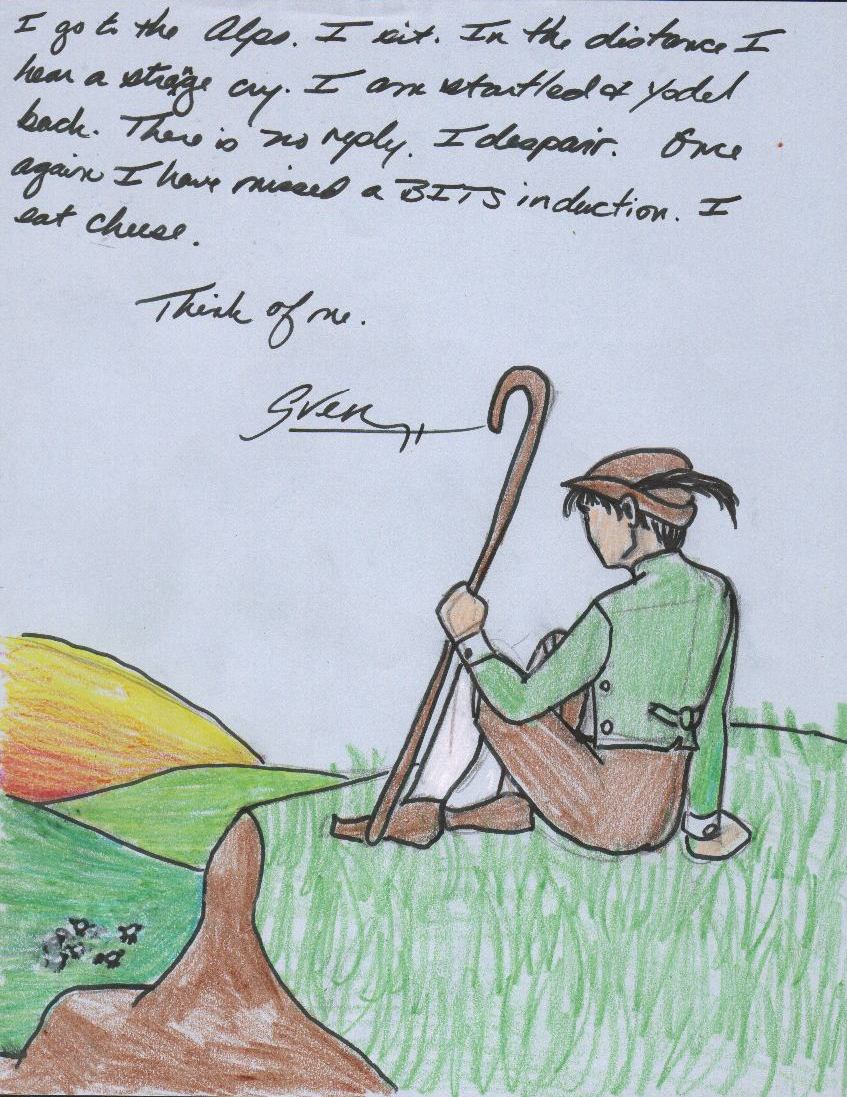 I go to the Alps. I sit. In the distance I
hear a strange cry. I am startled & yodel
back. There is no reply. I despair. Once
again I have missed a BITS induction. I
eat cheese.
Think of me.
Sven